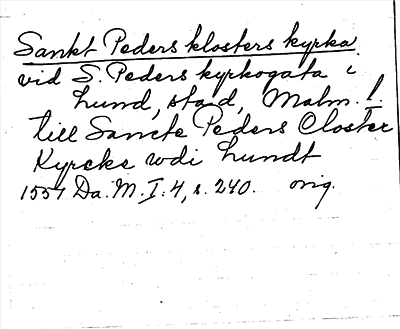 Sankt Peders klosters kyrka
vid S. Peders kyrkogata i
Lund, stad, Malm. l
till Sancte Peders Closter
Kyrcke wdi Lundt
1551 Da. M. I. 4, s. 240. orig.